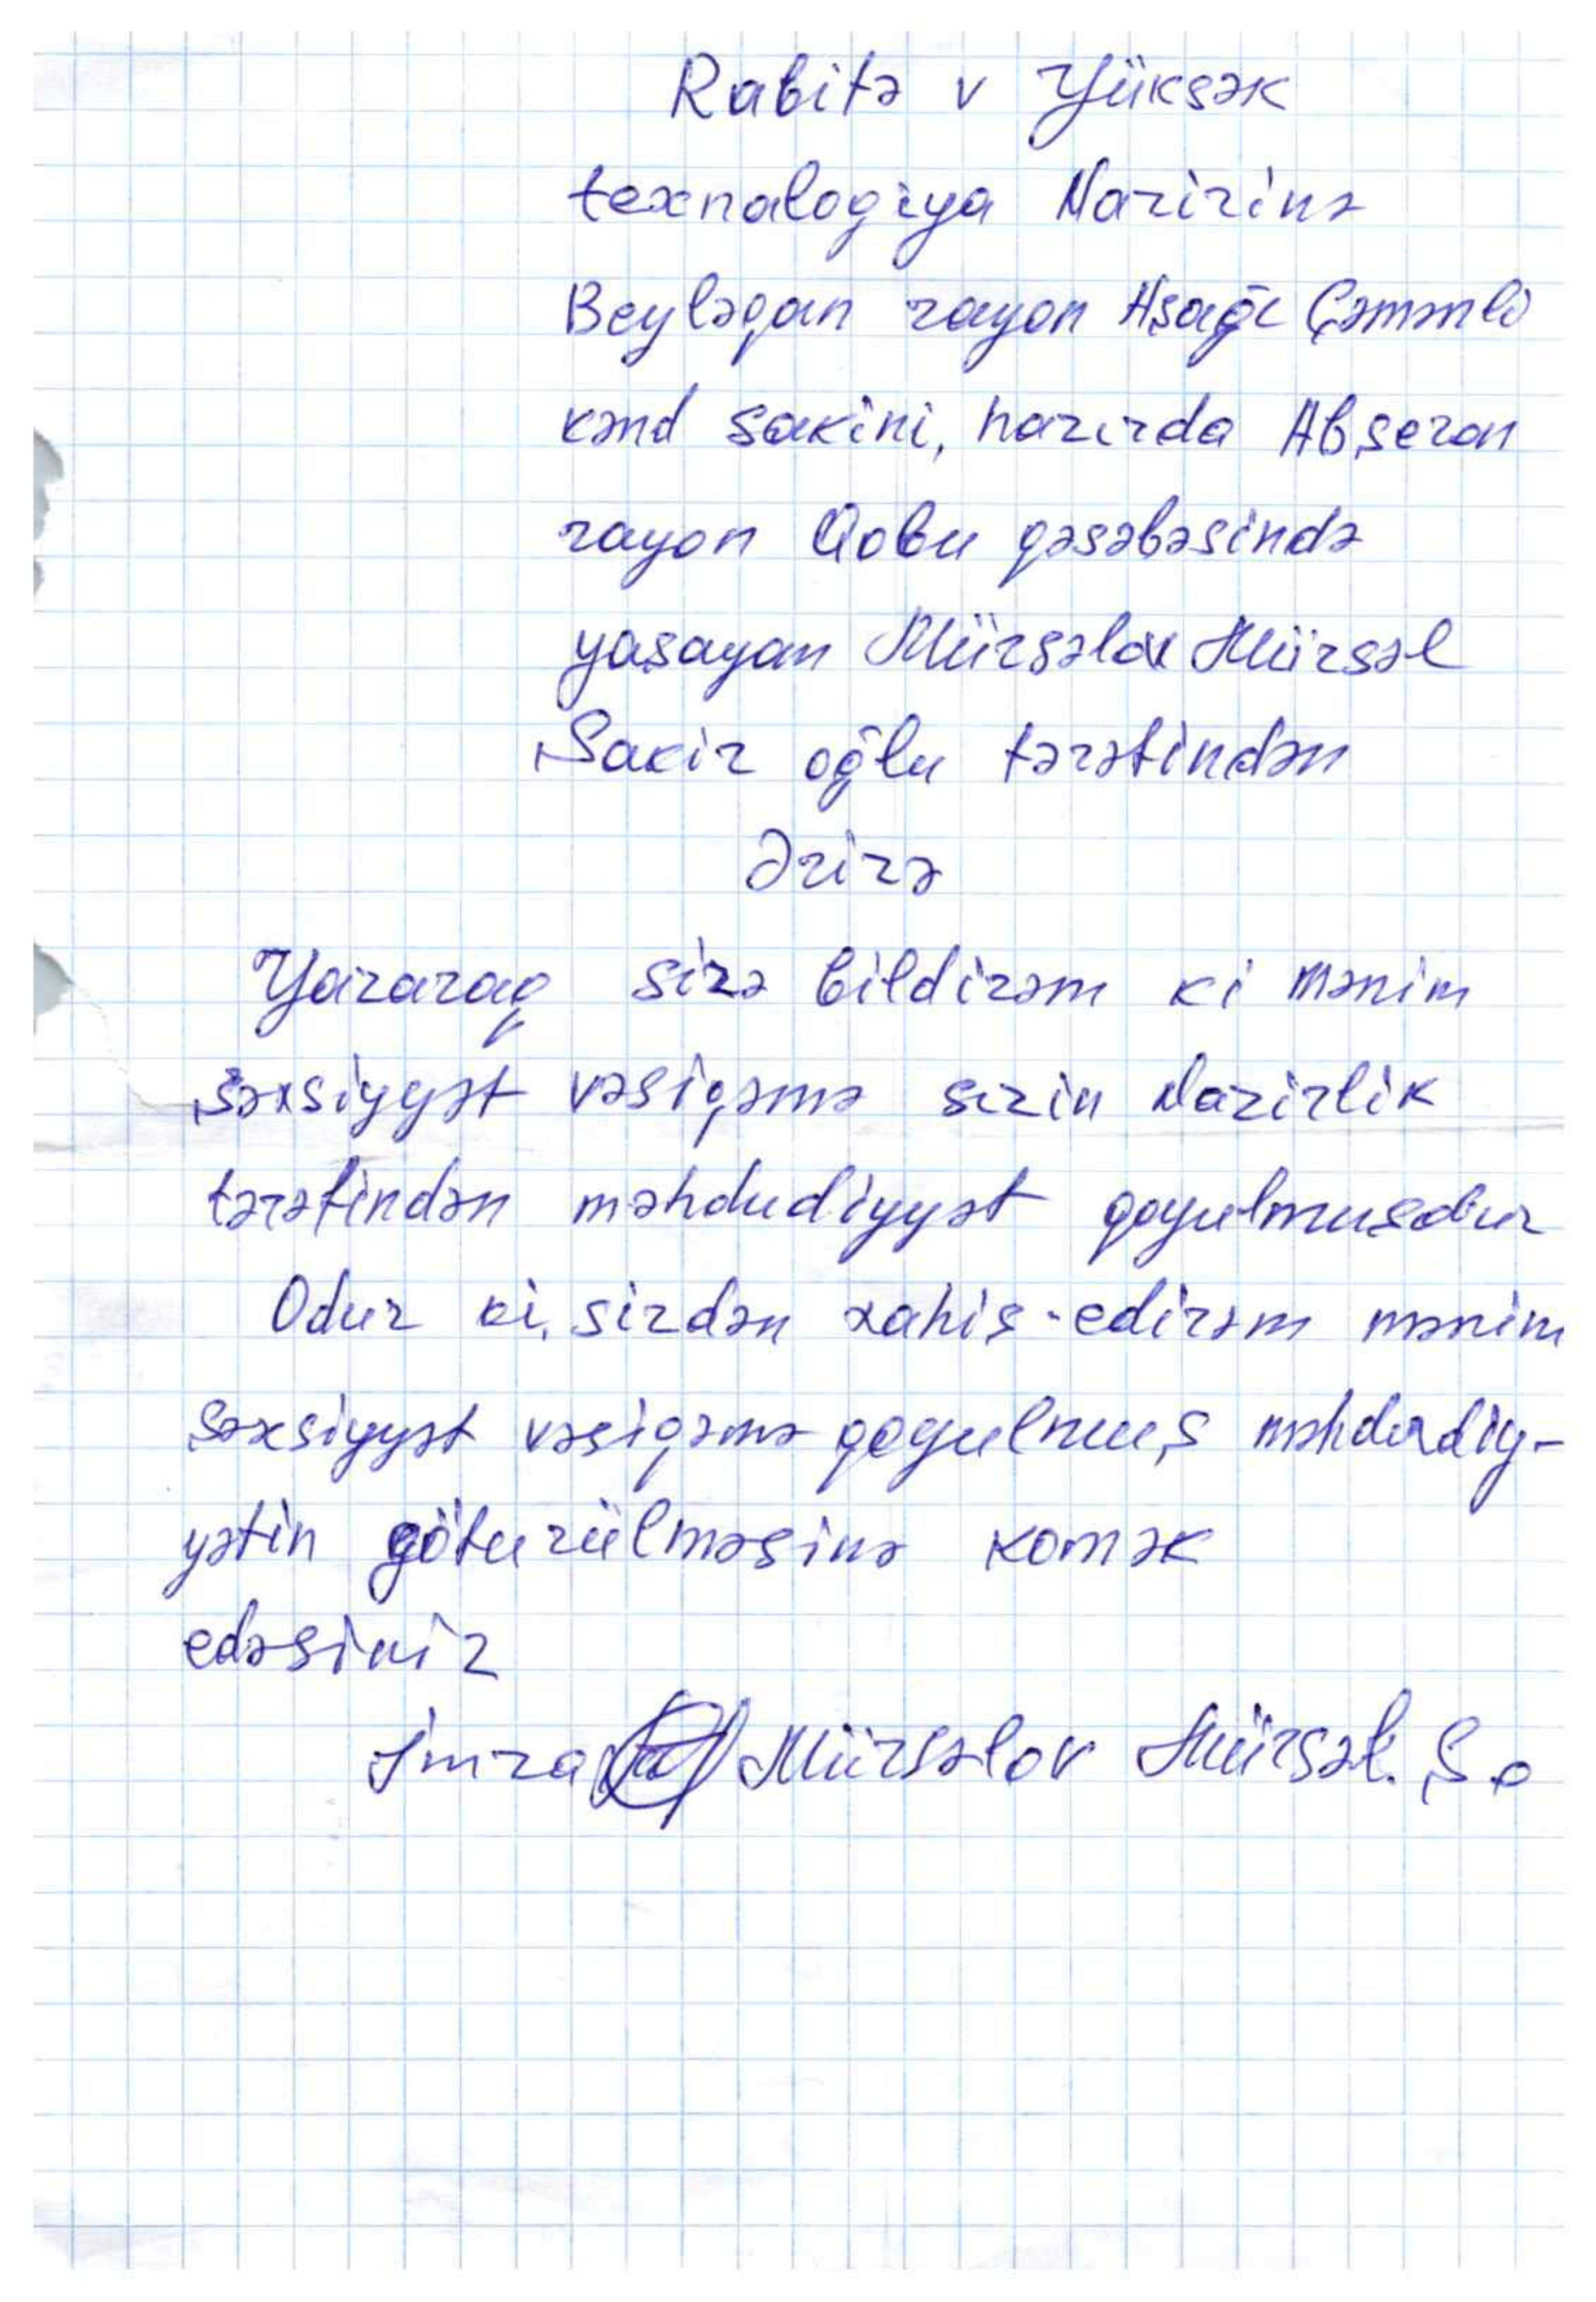 Rabitə v Yüksək
texnalogiya Nazirinə
Beyləqan rayon Aşağı Çəmənli
kənd sakini, hazırda Abşeron
rayon Qobu qəsəbəsində
yaşayan Mürsəlov Mürsəl
Şakir oğlu tərəfindən
Ərizə
Yazaraq sizə bildirəm ki mənim
şəxsiyyət vəsiqəmə sizin Nazirlik
tərəfindən məhdudiyyət qoyulmuşdur
Odur ki, sizdən xahiş-edirəm mənim
şəxsiyyət vəsiqəmə qoyulmuş məhdudiy-
yətin götürülməsinə komək
edəsiniz
İmza Mürsəlov Mürsəl. Ş.o